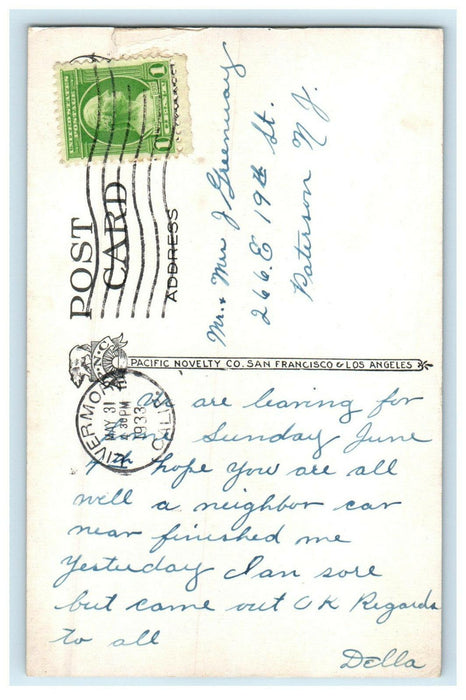 UNITED STATES
POSTAGE
1 CENT 1
POST
CARD
ADDRESS
Mr. + Mrs J Greenway
266. E 19th St.
Paterson N J.
P.N.C.
PACIFIC NOVELTY CO. SAN FRANCISCO & LOS ANGELES
LIVERMORE
MAY 31
PM
1933
CALIF.
We are leaving for
Sunday June
4th hope you are all
well a neighbor car
near finished me
Yesterday I an sore
but came out OK Regards
to all
Della